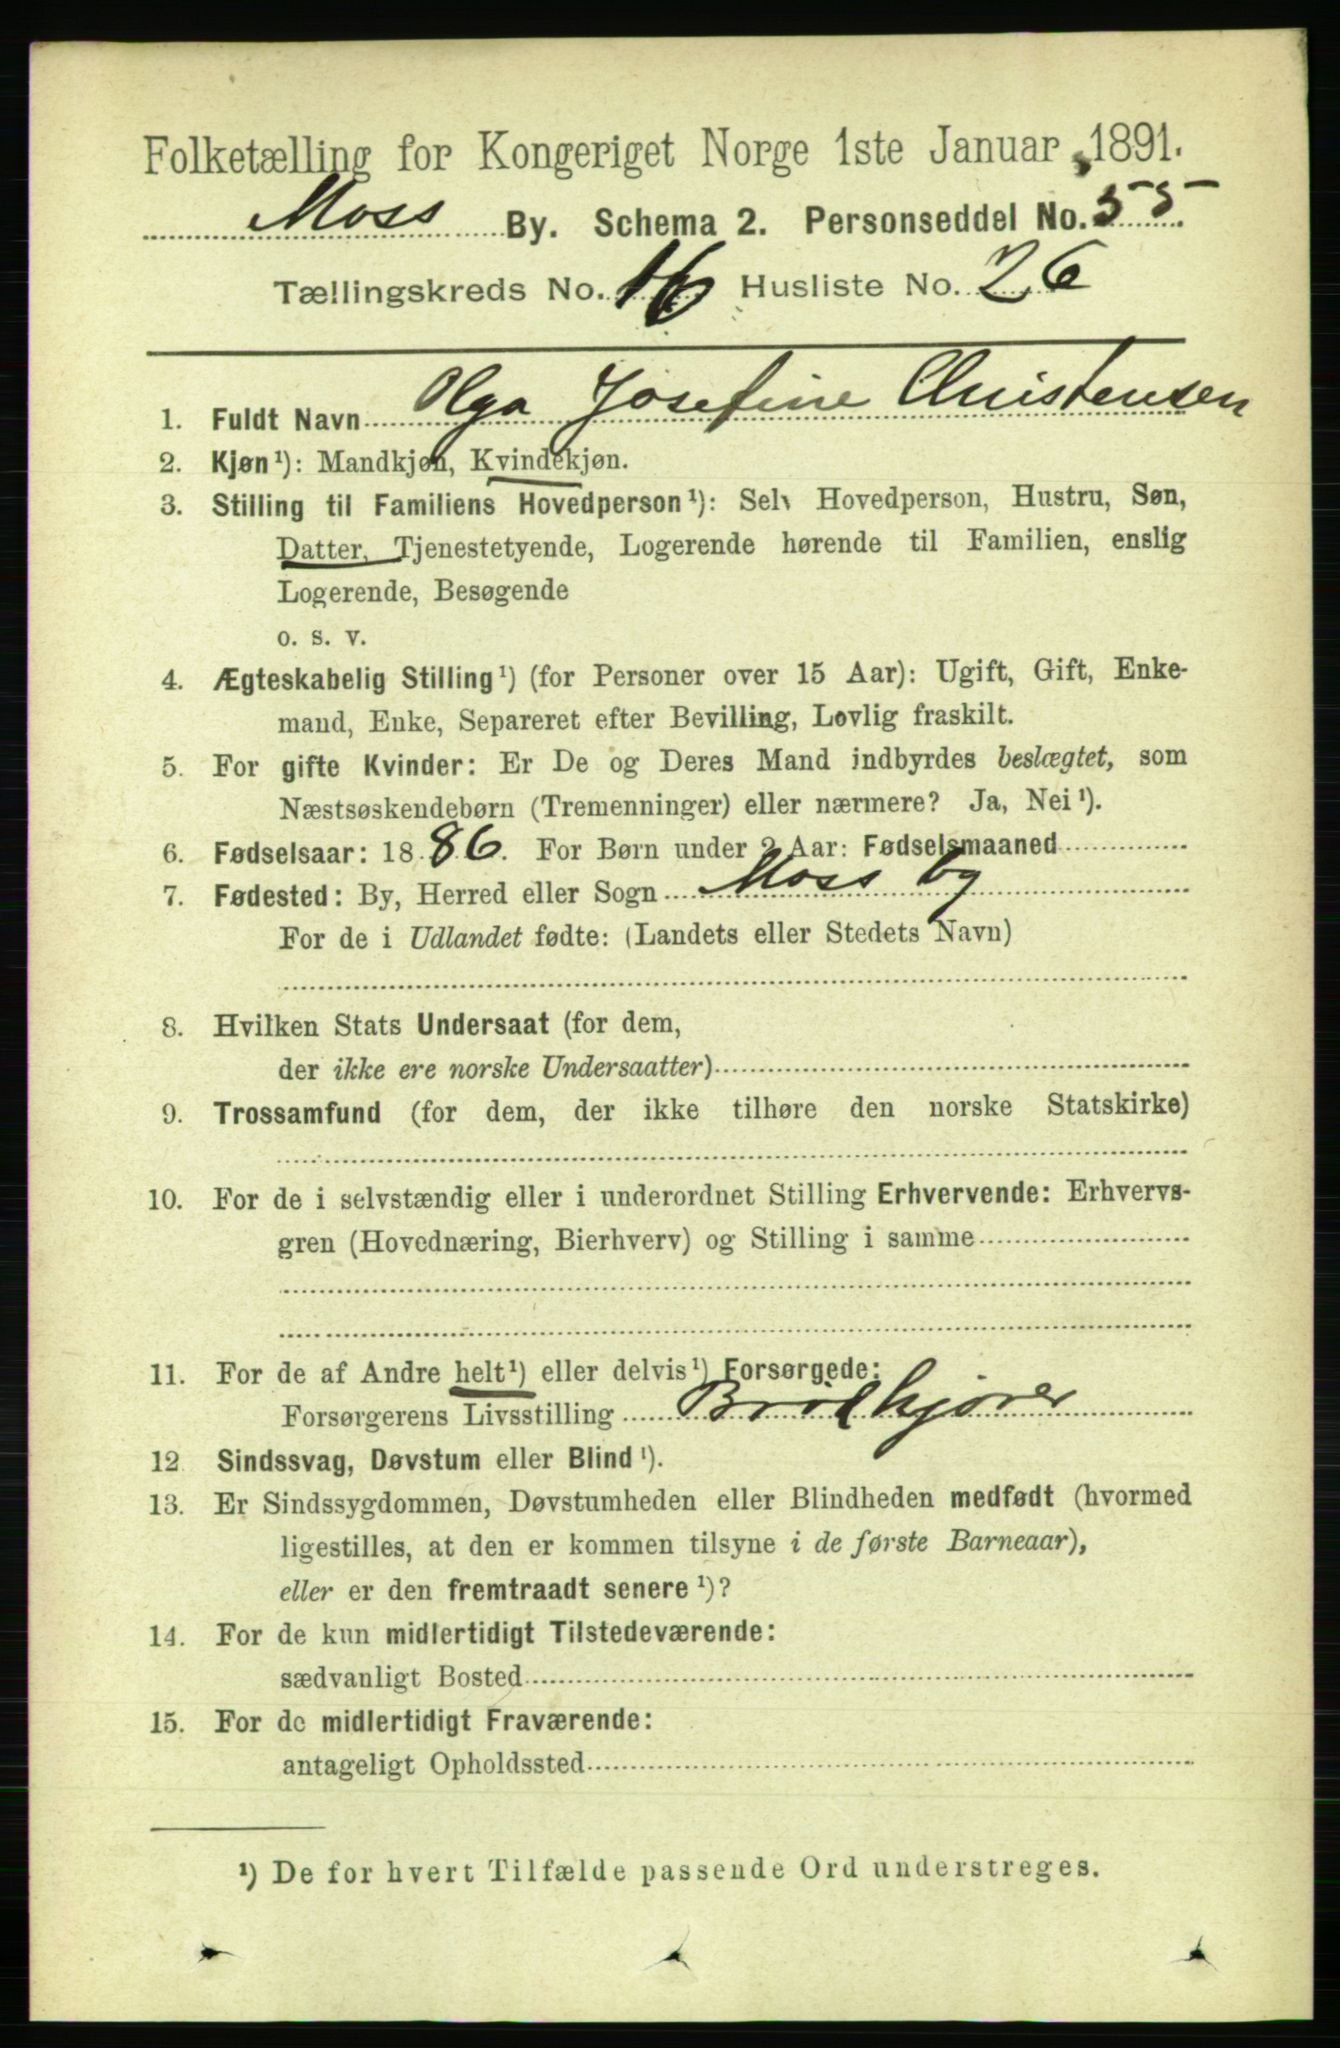 Folketælling for Kongeriget Norge 1ste Januar 1891.
Moss By. Schema 2. Personseddel No. 55
Tællingskreds No. 16 Husliste No. 26
1. Fuldt Navn Olga Josefine Christensen
2. Kjøn¹): Mandkjøn, Kvindekjøn.
3. Stilling til Familiens Hovedperson¹): Selv Hovedperson, Hustru, Søn,
Datter, Tjenestetyende, Logerende hørende til Familien, enslig
Logerende, Besøgende
o. s. v.
4. Ægteskabelig Stilling¹) (for Personer over 15 Aar): Ugift, Gift, Enke-
mand, Enke, Separeret efter Bevilling, Lovlig fraskilt.
5. For gifte Kvinder: Er De og Deres Mand indbyrdes beslægtet, som
Næstsøskendebørn (Tremenninger) eller nærmere? Ja, Nei¹).
6. Fødselsaar: 1886. For Børn under 2 Aar: Fødselsmaaned
7. Fødested: By, Herred eller Sogn Moss by
For de i Udlandet fødte: (Landets eller Stedets Navn)
8. Hvilken Stats Undersaat (for dem,
der ikke ere norske Undersaatter)
9. Trossamfund (for dem, der ikke tilhøre den norske Statskirke)
10. For de i selvstændig eller i underordnet Stilling Erhvervende: Erhvervs-
gren (Hovednæring, Bierhverv) og Stilling i samme
11. For de af Andre helt¹) eller delvis¹) Forsørgede:
Forsørgerens Livsstilling Brødkjører
12 Sindssvag, Døvstum eller Blind¹).
13. Er Sindssygdommen, Døvstumheden eller Blindheden medfødt (hvormed
ligestilles, at den er kommen tilsyne i de første Barneaar),
eller er den fremtraadt senere¹)?
14. For de kun midlertidigt Tilstedeværende:
sædvanligt Bosted
15. For de midlertidigt Fraværende:
antageligt Opholdssted
¹) De for hvert Tilfælde passende Ord understreges.